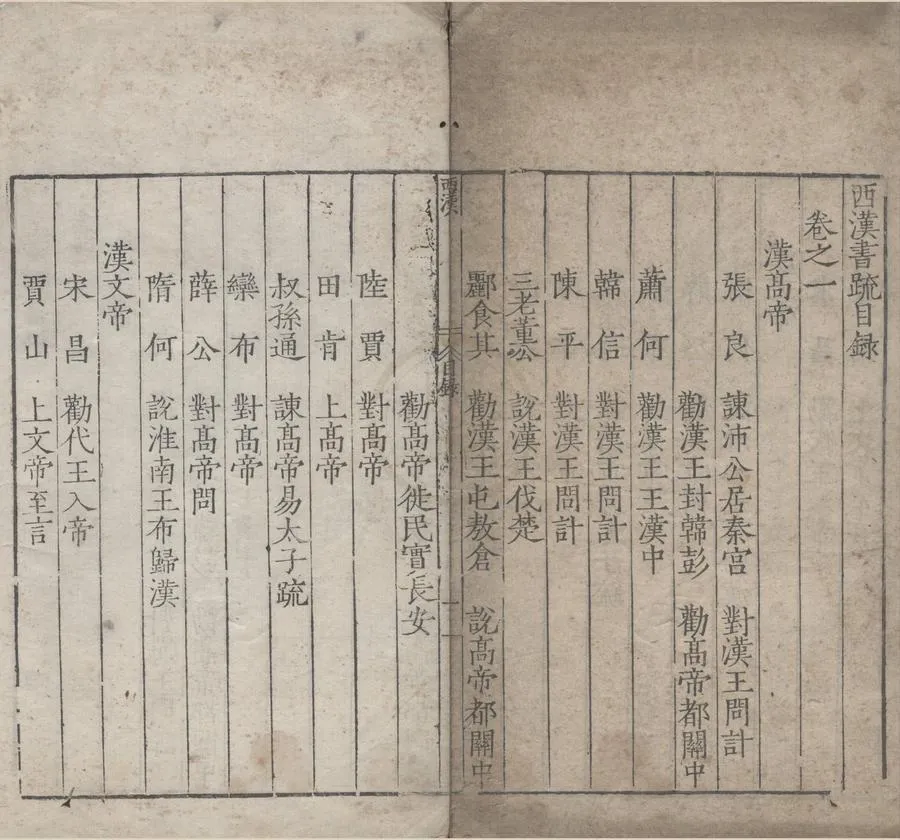 西漢書疏目録
卷之一
漢髙帝
張良 諫沛公居秦宫 對漢王問計
勸漢王封韓彭 勸髙帝都關中
蕭何 勸漢王王漢中
韓信 對漢王問計
陳平 對漢王問計
三老董公 說漢王伐楚
酈食其 勸漢王屯敖倉 說髙帝都關中
西漢 目録 一
勸髙帝徙民實長安
陸賈 對髙帝
田肯 上髙帝
叔孫通 諫髙帝易太子疏
欒布 對髙帝
薛公 對髙帝問
隋何 說淮南王布歸漢
漢文帝
宋昌 勸代王入帝
賈山 上文帝至言